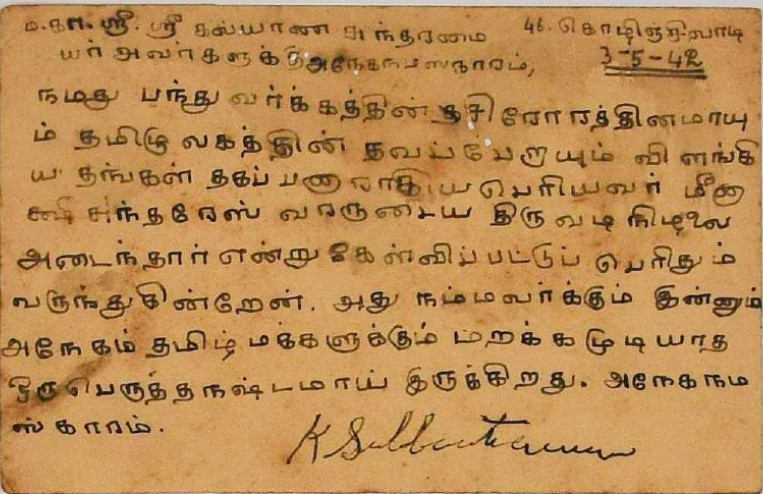 ம.கா.ஸ்ரீ. ஸ்ரீ கல்யாண சுந்தரமை 46. கொழிஞ்சிவாடி
யர் அவர்களுக்கு அநேகநமஸ்காரம், 3-5-42
நமது பந்து வர்க்கத்தின் சிரோரத்தினமாயு
ம் தமிழுலகத்தின் தவப்பேறாயும் விளங்கி
ய தங்கள் தகப்பனாராகிய பெரியவர் மீனா
க்ஷி சுந்தரேஸ்வரருடைய திருவடி நிழலை
அடைந்தார் என்று கேள்விப்பட்டுப் பெரிதும்
வருந்துகின்றேன். அது நம்மவர்க்கும் இன்னும்
அநேகம் தமிழ் மக்களுக்கும் மறக்கமுடியாத
ஒரு பெருத்த நஷ்டமாய் இருக்கிறது. அநேகநம
ஸ்காரம்.